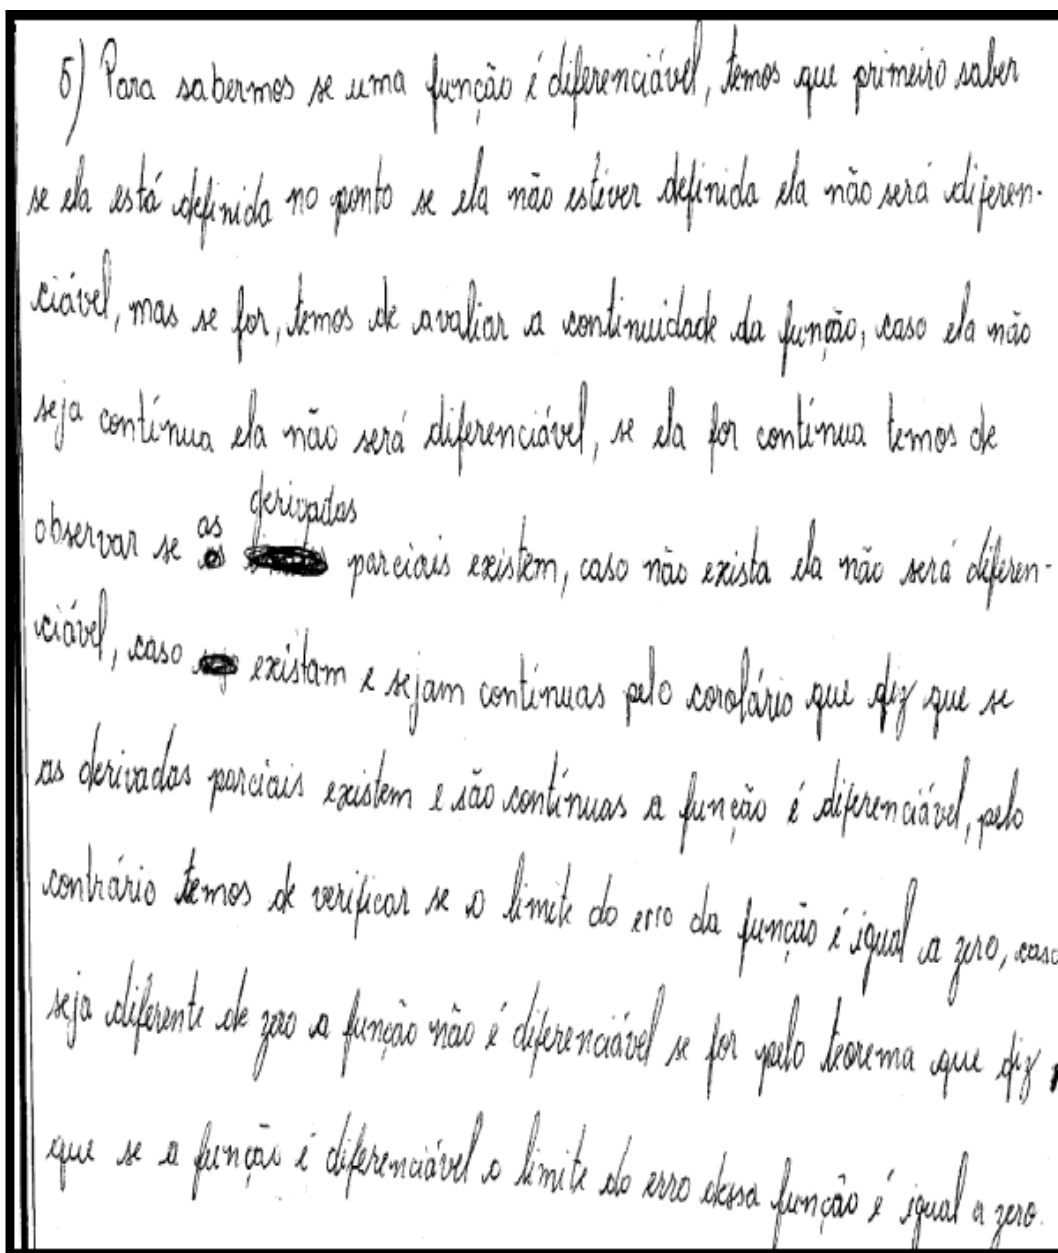 5) Para sabermos se uma função é diferenciável, temos que primeiro saber
se ela está definida no ponto se ela não estiver definida ela não será diferen-
ciável, mas se for, temos de avaliar a continuidade da função, caso ela não
seja contínua ela não será diferenciável, se ela for contínua temos de
observar se as derivadas parciais existem, caso não exista ela não será diferen-
ciável, caso existam e sejam contínuas pelo corolário que diz que se
as derivadas parciais existem e são contínuas a função é diferenciável, pelo
contrário temos de verificar se o limite do erro da função é igual a zero, caso
seja diferente de zero a função não é diferenciável se for pelo teorema que diz
que se a função é diferenciável o limite do erro dessa função é igual a zero.